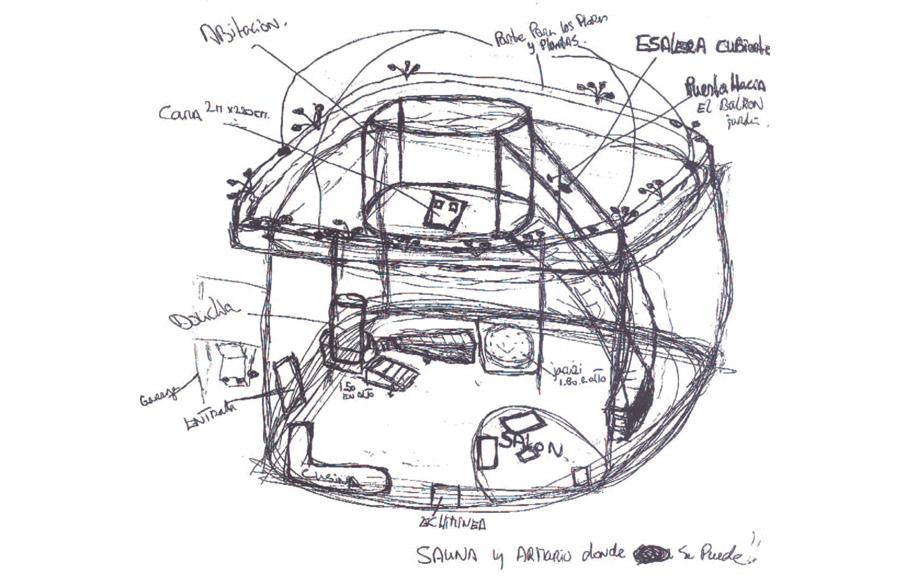 Abitacion.
Parte Para las Flores
y Plantas.
ESALERA CUBIERTA
Puerta Hacia
EL BALKON
jardin.
Cama 2m x 220cm.
Doucha
Garage
ENTRADA
1.50
EN ALTO
jacuzi
1.80. EN ALTO
SALON
CUSINA
LA CHIMINEA
SAUNA y ARMARIO donde Se Puede!!